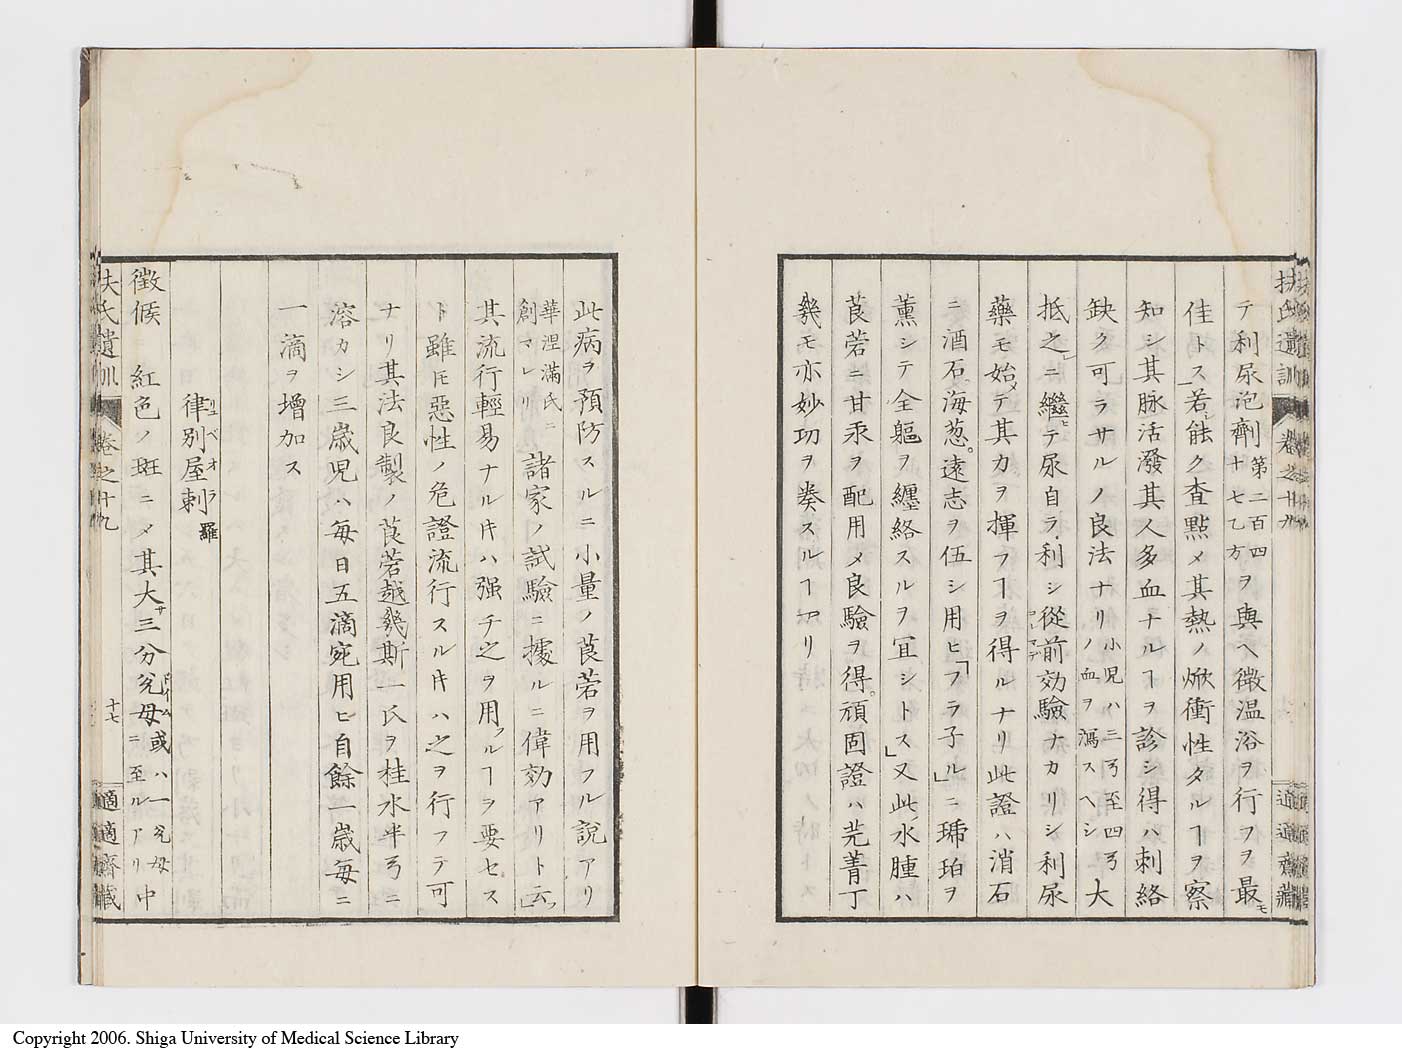 扶氏遺訓 卷之十九 適適齋藏
テ利尿泡劑十七乙方第二百四ヲ與ヘ微温浴ヲ行フヲ最モ
佳トス」若シ能ク査點メ其熱ノ焮衝性タルヿヲ察
知シ其脉活潑其人多血ナルヿヲ診シ得ハ刺絡
缺ク可ラサルノ良法ナリ小兒ハ三弓至四弓ノ血ヲ瀉スヘシ大
抵之ニ繼テ尿自ラ利シ從前効驗ナカリシ利尿
藥モ始メテ其力ヲ揮フヿヲ得ルナリ此證ハ消石
ニ酒石。海葱。遠志ヲ伍シ用ヒ「フラ子ル」ニ琥珀ヲ
薫シテ全軀ヲ纒絡スルヲ冝シトス」又此水腫ハ
莨菪ニ甘汞ヲ配用メ良驗ヲ得。頑固證ハ芫菁丁
幾モ亦妙功ヲ奏スルヿアリ
此病ヲ預防スルニ小量ノ莨菪ヲ用フル説アリ
華涅滿氏ニ創マレリ諸家ノ試驗ニ據ルニ偉効アリト云フ」
其流行輕易ナル片ハ强チ之ヲ用フルヿヲ要セス
ト雖㪽惡性ノ危證流行スル片ハ之ヲ行フテ可
ナリ其法良製ノ莨菪越幾斯一氏ヲ桂水半弓ニ
溶カシ三歳児ハ毎日五滴宛用ヒ自餘一歳毎ニ
一滴ヲ增加ス
律別屋剌羅リュベオラ
徴候ニ紅色ノ斑ニメ其大サ三分兊母或ハ一兊母ニ至ルアリ中
扶氏遺訓 卷之十九 十七 適適齋藏
Copyright 2006. Shiga University of Medical Science Library